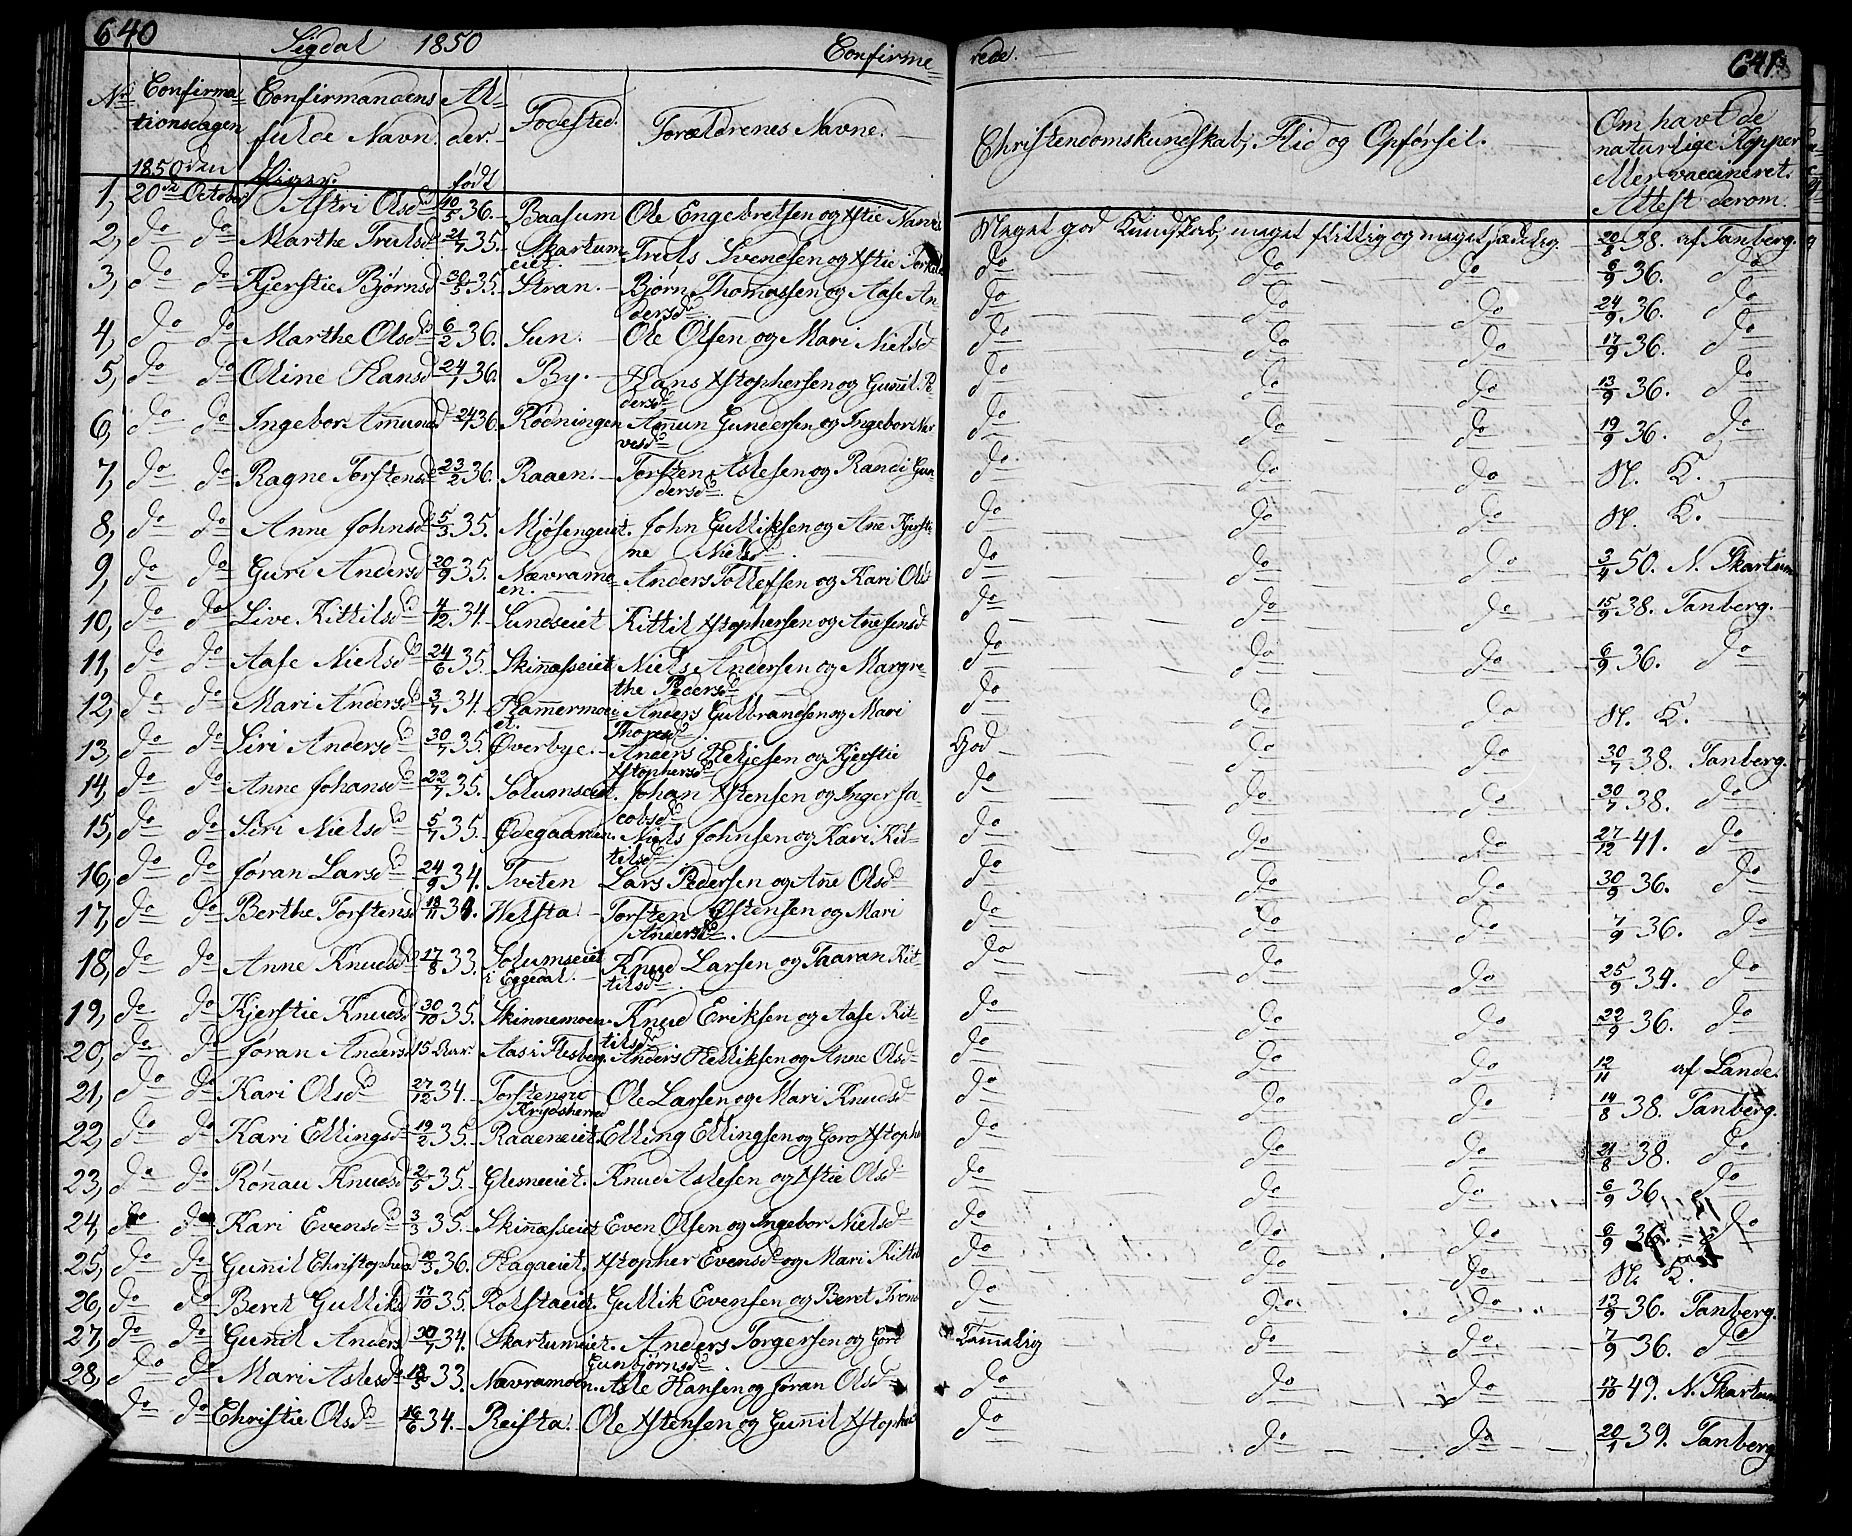 640 Sigdal 1850 Confirme=
No Confirma= Confirmandens Al= Fødested. Forældrenes Navne.
tionsdagen fulde Navn. der.
1850 den Piger. født
1, 20de October Astri Olsd 10/5 36. Baasum Ole Engebretsen og Xstie
2, do do Marthe Trulsd 21/7 35. Skartum= Truls Svendsen og Xstie Torkels
eiet.
3, do do Kjerstie Bjørnsd 30/5 35. Stran. Bjørn Thomassen og Aase An
dersd.
4, do do Marthe Olsd 6/2 36. Sun. Ole Olsen og Mari Nielsd
5, do do Oline Hansd 24/1 36. By. Hans Xstophersen og Gunil. P
dersd
6, do do Ingebor Amund 36. Rødningen Amun Gundersen og Ingebor Nar
vesd
7, do do Ragne Torstensd 23/2 36. Raaen. Torsten Aslesen og Randi Gun
dersd.
8, do do Anne Johnsd 5/3 35. Mjøsengeiet. John Gulliksen og Ane Kjersti
ne Nielsd.
9, do do Guri Andersd 20/9 35. Nævramo Anders Tollefsen og Kari Ols
en.
10, do do Live Kittilsd 4/12 34. Sundseiet Kittil Xstophersen og Ane Jensd
11, do do Aase Nielsd 24/6 35. Skinæsseiet Niels Andersen og Margre=
the Pedersd
12, do do Mari Andersd 3/7 34. Hamermoei Anders Gulbrandsen og Mari
et. Thoresd.
13, do do Siri Andersd 30/7 35. Øverbye. Anders Helgesen og Kjerstie
Xstophersd
14, do do Anne Johansd 22/7 35. Solumseiet. Johan Xstensen og Inger Ja=
cobsd
15, do do Siri Nielsd 5/7 35. Ødegaarden. Niels Johnsen og Kari Kit=
tilsd
16, do do Jøran Larsd 24/9 34. Tveten Lars Pedersen og Ane Olsd
17, do do Berthe Torstensd 18/11 34. Velsta. Torsten Østensen og Mari
Andersd.
18, do do Anne Knudsd 17/8 33. Solumseiet Knud Larsen og Taaran Kit=
i Eggedal. tilsd.
19, do do Kjerstie Knudsd 30/10 35. Skinnemoen. Knud Eriksen og Aase Kit=
tilsd
20, do do Jøran Andersd 15 Aar. Aas i Flesberg. Anders Helliksen og Anne Olsd
21, do do Kari Olsd 27/12 34. Ole Larsen og Mari Knudsd
Krydsherred
22, do do Kari Ellingsd 19/2 35. Raaeneiet. Elling Ellingsen og Goro Xstoph
23, do do Rønau Knudsd 2/5 35. Glesneeiet. Knud Aslesen og Xstie Olsd
24, do do Kari Evensd 3/3 35. Skinæsseiet Even Olsen og Ingebor Nielsd
25, do do Gunil Christophersd 10/3 36. Hagaeiet. Xstopher Evensen og Mari Kittils
26, do do Beret Gulliks 17/10 35. Rolstaeiet. Gullik Evensen og Beret Trons
27, do do Gunil Anders 30/7 34. Skartumeiet. Anders Torgersen og Goro
Gunbjørnsd.
28, do do Mari Aslesd 18/5 33. Nævramoen. Asle Hansen og Jøran Olsd
do do Christie Olsd 16/6 34. Reista. Ole Xstensen og Gunil Xstophe
rede. 641.
Christendomskundskab, Flid og Opførsel. Om havt de
naturlige Kopper
eller vaccineret.
Attest derom.
Meget god Kundskab, meget flittig og meget sædelig. 20/8 38. af Tanberg.
do do do 6/9 36. do
do do do 24/9 36. do
do do do 17/9 36. do
do do do 13/9 36. do
do do do 19/9 36. do
do do do N. K.
do do do N. K.
do do do 3/4 50. N. Skartum
do do do 15/9 38. Tanberg.
do do do 6/9 36. do
do do do N. K.
God do do 30/7 38. Tanberg.
do do do 30/7 38. do
do do do 27/12 41. do
do do do 30/9 36. do
do do do 7/9 36. do
do do do 25/9 34. do
do do do 22/9 36. do
do do do 12/11 af Lande.
do do do 14/8 38. Tanberg.
do do do 21/8 38. do
do do do 6/9 36 do
do do do 6/9 36. do
do do do N. K.
do do do 13/9 36. Tanberg.
Tammelig do do 7/9 36. do
do do do 17/10 49. N. Skartum
do do do 20/1 39. Tanberg